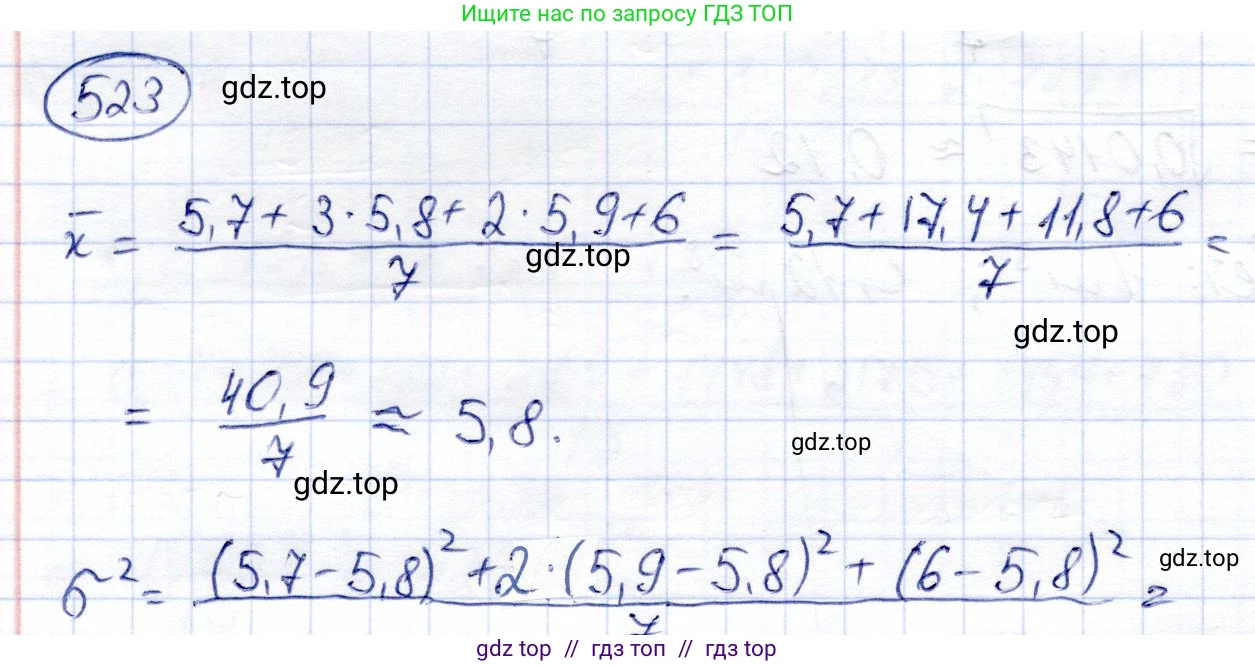 Ищите нас по запросу ГДЗ ТОП
523 gdz.top
x̄ = (5,7 + 3 · 5,8 + 2 · 5,9 + 6)/7 = (5,7 + 17,4 + 11,8 + 6)/7 =
gdz.top
gdz.top
= 40,9/7 ≈ 5,8.
gdz.top
gdz.top
σ² = ((5,7 – 5,8)² + 2 · (5,9 – 5,8)² + (6 – 5,8)²)/7 =
gdz.top
gdz top // гдз топ // gdz top